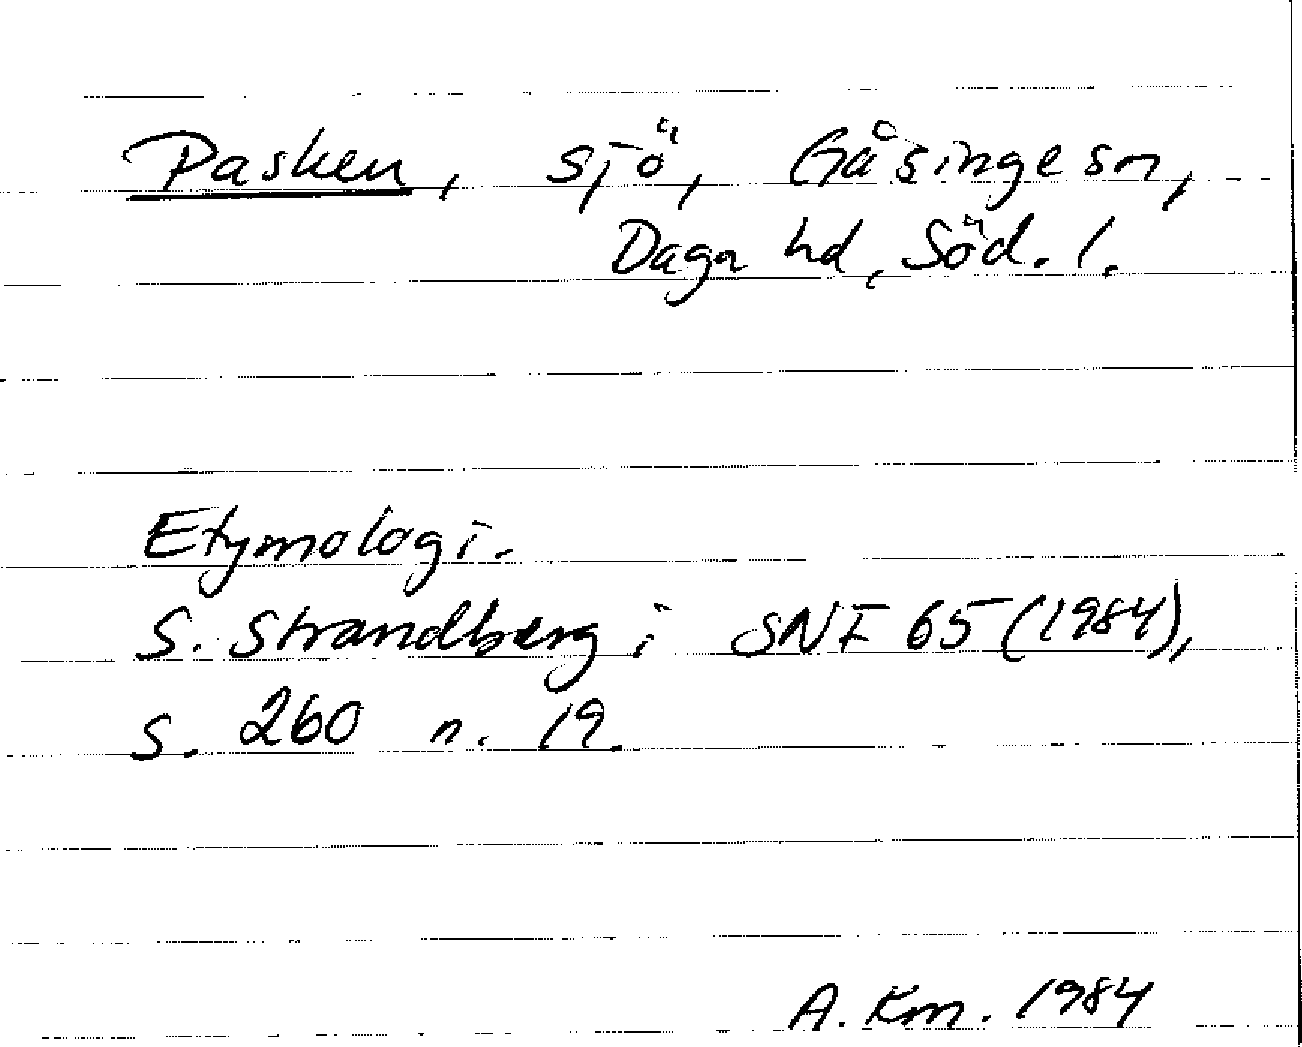 Pasken, sjö, Gåsinge sn,
Daga hd, Söd. l.
Etymologi.
S. Strandberg i SNF 65 (1984),
s. 260 n. 19.
A. Km. 1984